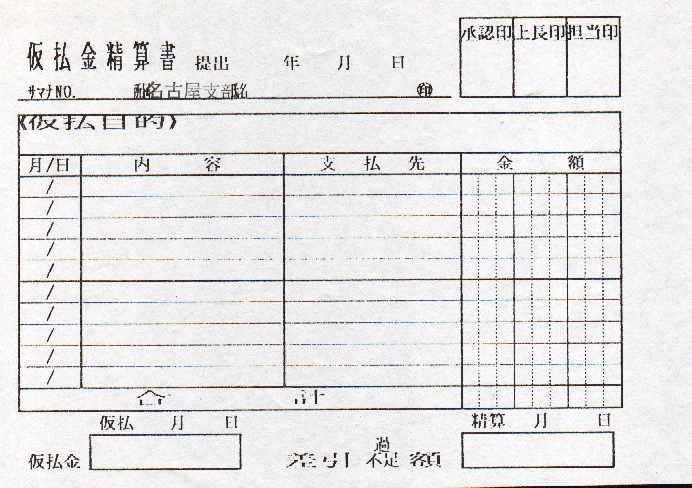 承認印 上長印 担当印
仮払金精算書 提出 年 月 日
サマナNO. 名古屋支部 氏名 ㊞
(仮払目的)
月/日 内容 支払先 金額
/
/
/
/
/
/
/
/
/
/
合計
仮払 月 日 精算 月 日
仮払金 差引 過不足 額